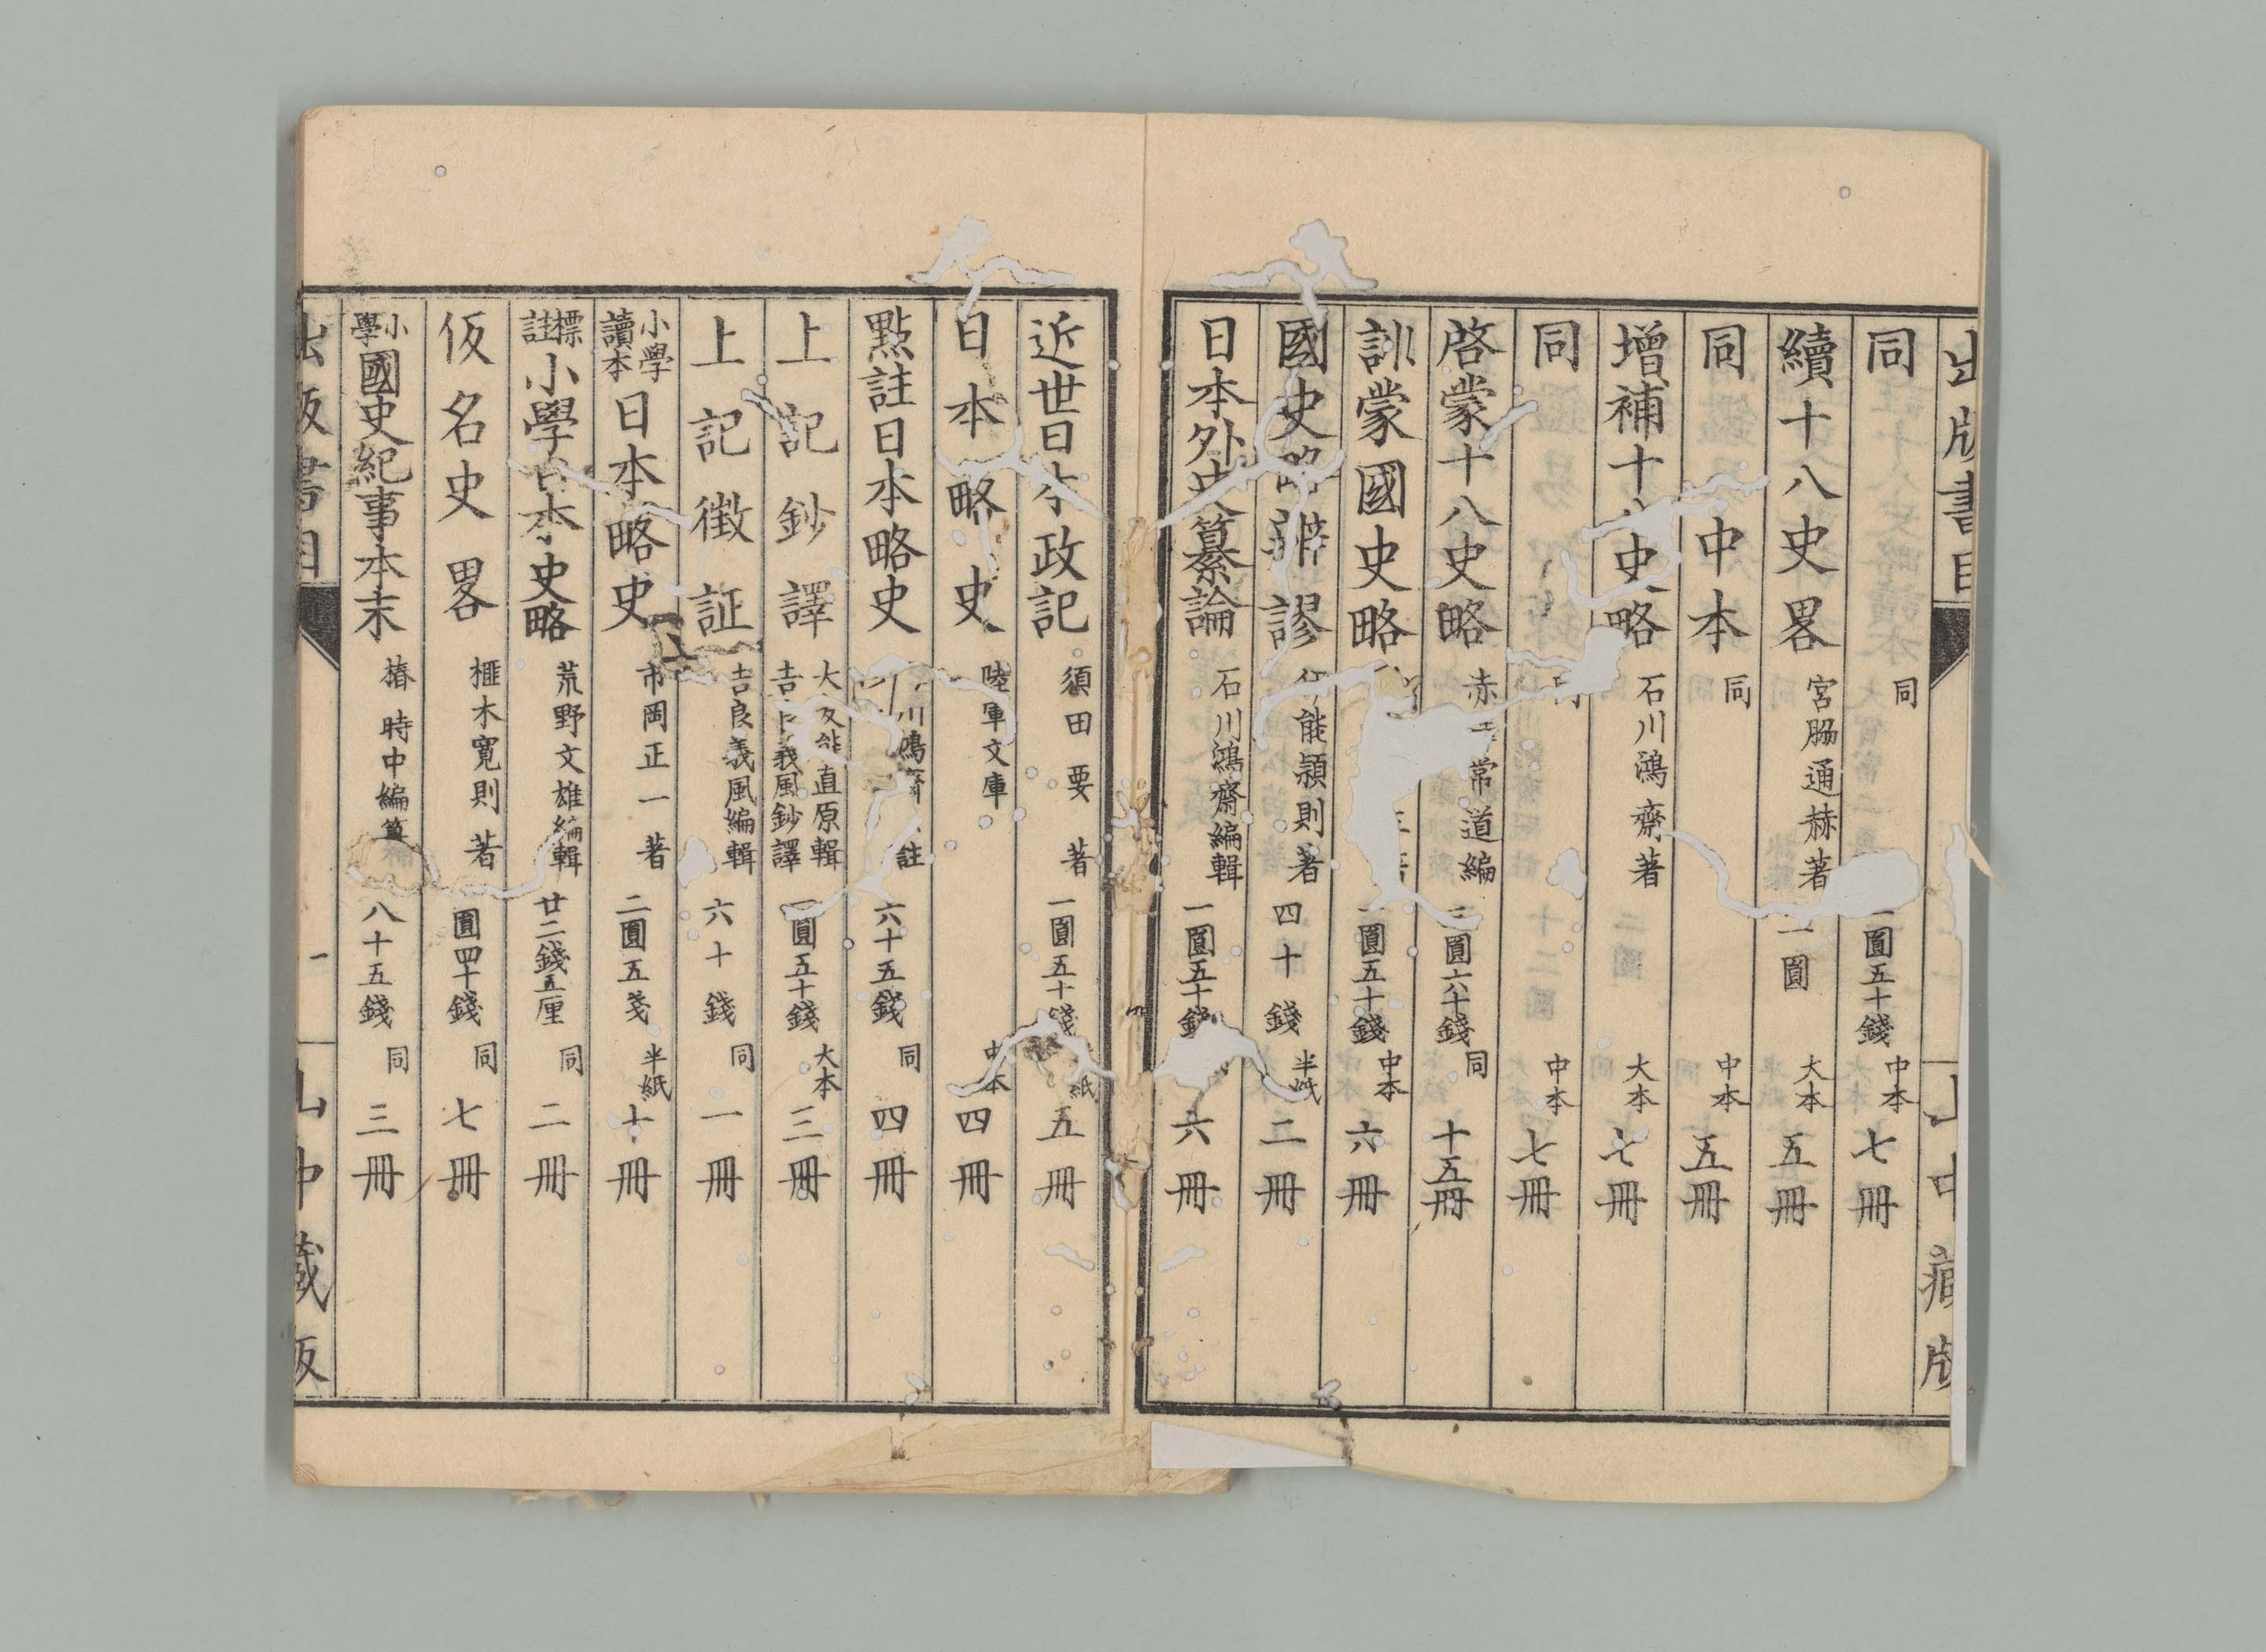 出版書目
山中藏版
同 同 一圓五十錢 中本 七冊
續十八史畧 宮脇通赫著 一圓 大本 五冊
同 中本 同 中本 五冊
增補十八史略 石川鴻齋著 大本 七冊
同 同 中本 七冊
啓蒙十八史略 赤 常道編 圓六十錢 同 十五冊
訓蒙國史略 圓五十錢 中本 六冊
國史略辨謬 能穎則著 四十錢 半紙 二冊
日本外史纂論 石川鴻齋編輯 一圓五十錢 六冊
近世日本政記 須田要著 一圓五十錢 紙 五冊
日本略史 陸軍文庫 中本 四冊
點註日本略史 川鴻齋 註 六十五錢 同 四冊
上記鈔譯 大友能直原輯 吉良義風鈔譯 圓五十錢 大本 三冊
上記徴証 吉良義風編輯 六十錢 同 一冊
小學讀本 日本略史 市岡正一著 二圓五戔 半紙 十冊
標註 小學日本史略 荒野文雄編輯 廿二錢五厘 同 二冊
仮名史畧 榧木寬則著 圓四十錢 同 七冊
小學 國史紀事本末 椿時中編纂 八十五錢 同 三冊
出版書目
一
山中藏版